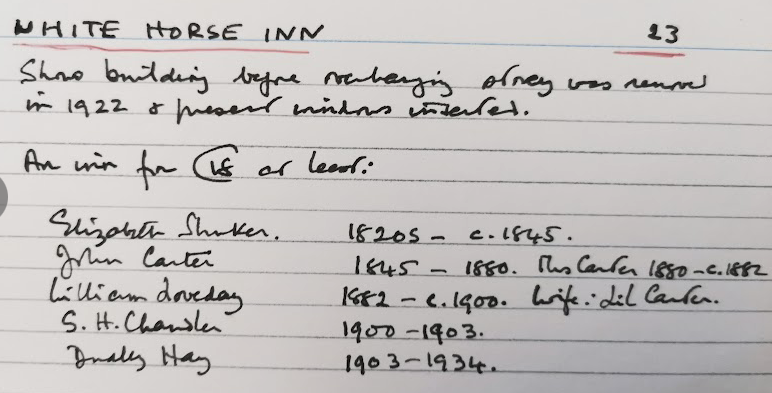 WHITE HORSE INN 23
Shows building before overhanging storey was removed
in 1922 & present windows inserted.
An inn for at least:
Elizabeth Shuker. 1820s - c. 1845.
John Carter 1845 - 1880. Mrs Carter 1880 - c. 1882
William Loveday 1882 - c. 1900. Wife: Lil Carter.
S. H. Chandler 1900 - 1903.
Dudley Hay 1903 - 1934.